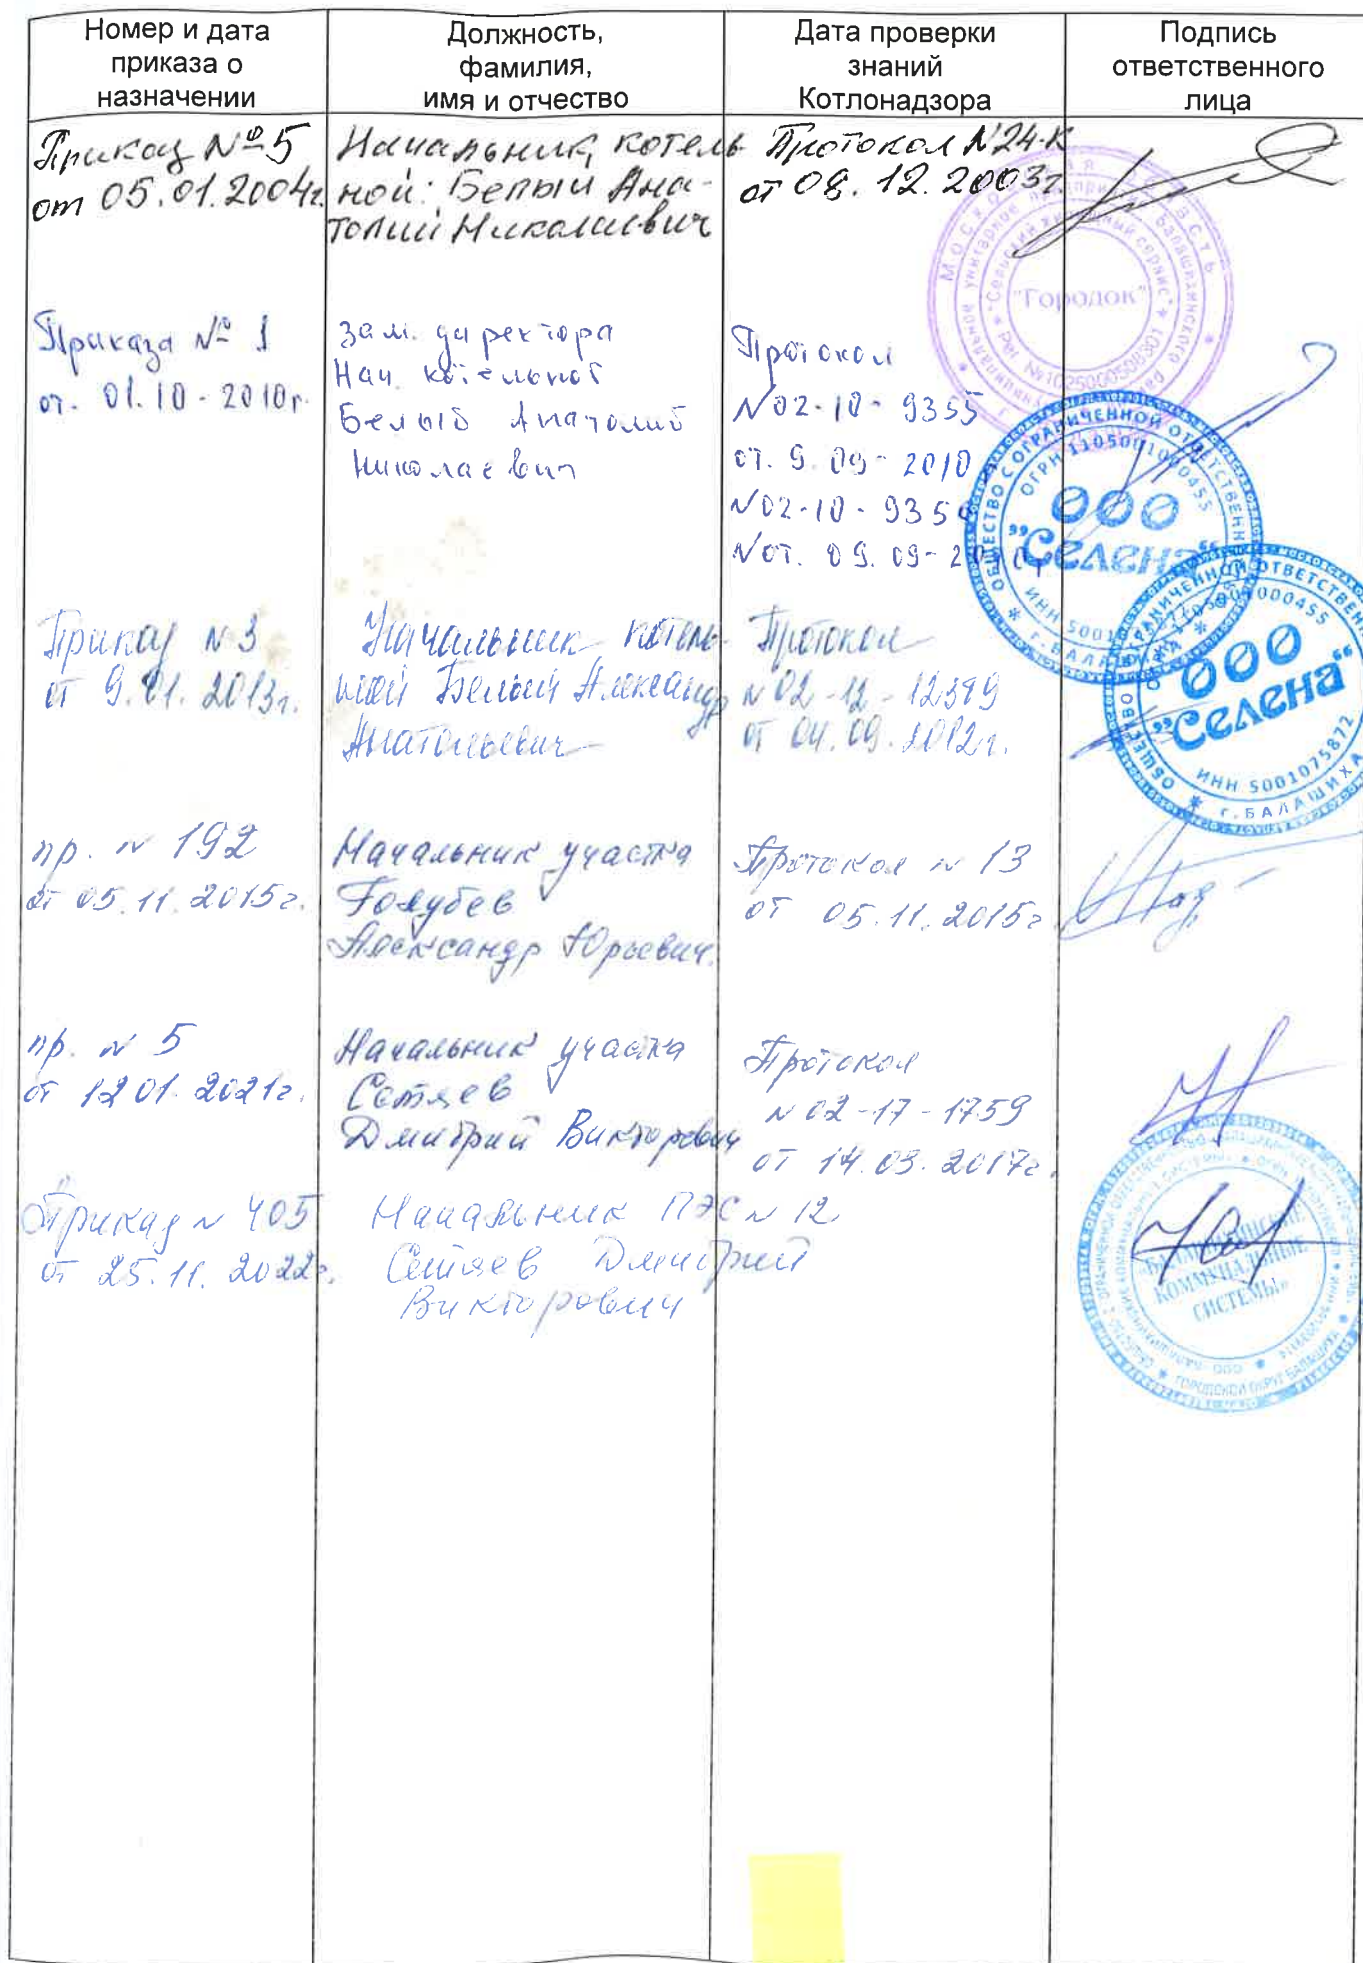 Номер и дата
приказа о
назначении
Должность,
фамилия,
имя и отчество
Дата проверки
знаний
Котлонадзора
Подпись
ответственного
лица
Приказ №5
от 05.01.2004г.
Начальник котель-
ной: Белый Ана-
толий Николаевич
Протокол N24-К
от 08.12.2003г.
"Городок"
Приказа № 1
от. 01.10-2010г.
зам. директора
Нач. котельной
Белый Анатолий
Николаевич
Протокол
N02-10-9355
от. 9.09-2010
N02-10-935
Nот. 09.09-2010
ОБЩЕСТВО С ОГРАНИЧЕННОЙ ОТВЕТСТВЕНН
ОГРН 1105001000455
ООО
"Селена"
ИНН 5001
Приказ N3
от 9.01.2013г.
Начальник котель-
ной Белый Александр
Анатольевич
Протокол
N02-12-12389
от 04.09.2012г.
ООО
"Селена"
ИНН 5001075872
г. БАЛАШИХА
пр. N 192
от 05.11.2015г.
Начальник участка
Голубев
Александр Юрьевич.
Протокол N 13
от 05.11.2015г
пр. N 5
от 12 01. 2021г.
Начальник участка
Сетяев
Дмитрий Викторович
Протокол
N 02-17-1759
от 14.03.2017г.
Приказ N 405
от 25.11.2022г.
Начальник ПЭС N 12
Сетяев Дмитрий
Викторович
«БАЛАШИХИНСКИЕ
КОММУНАЛЬНЫЕ
СИСТЕМЫ»
ГОРОДСКОЙ ОКРУГ БАЛАШИХА